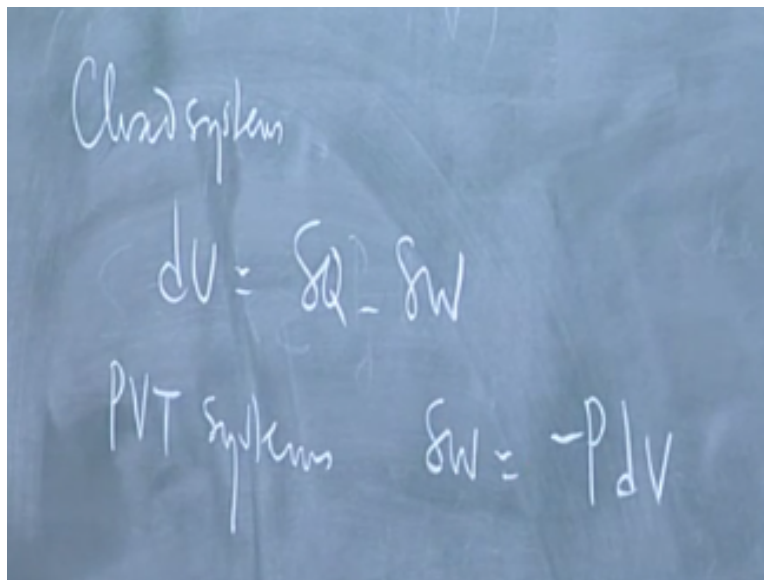 Closed systems
dU = δQ - δW
PVT systems δW = -PdV